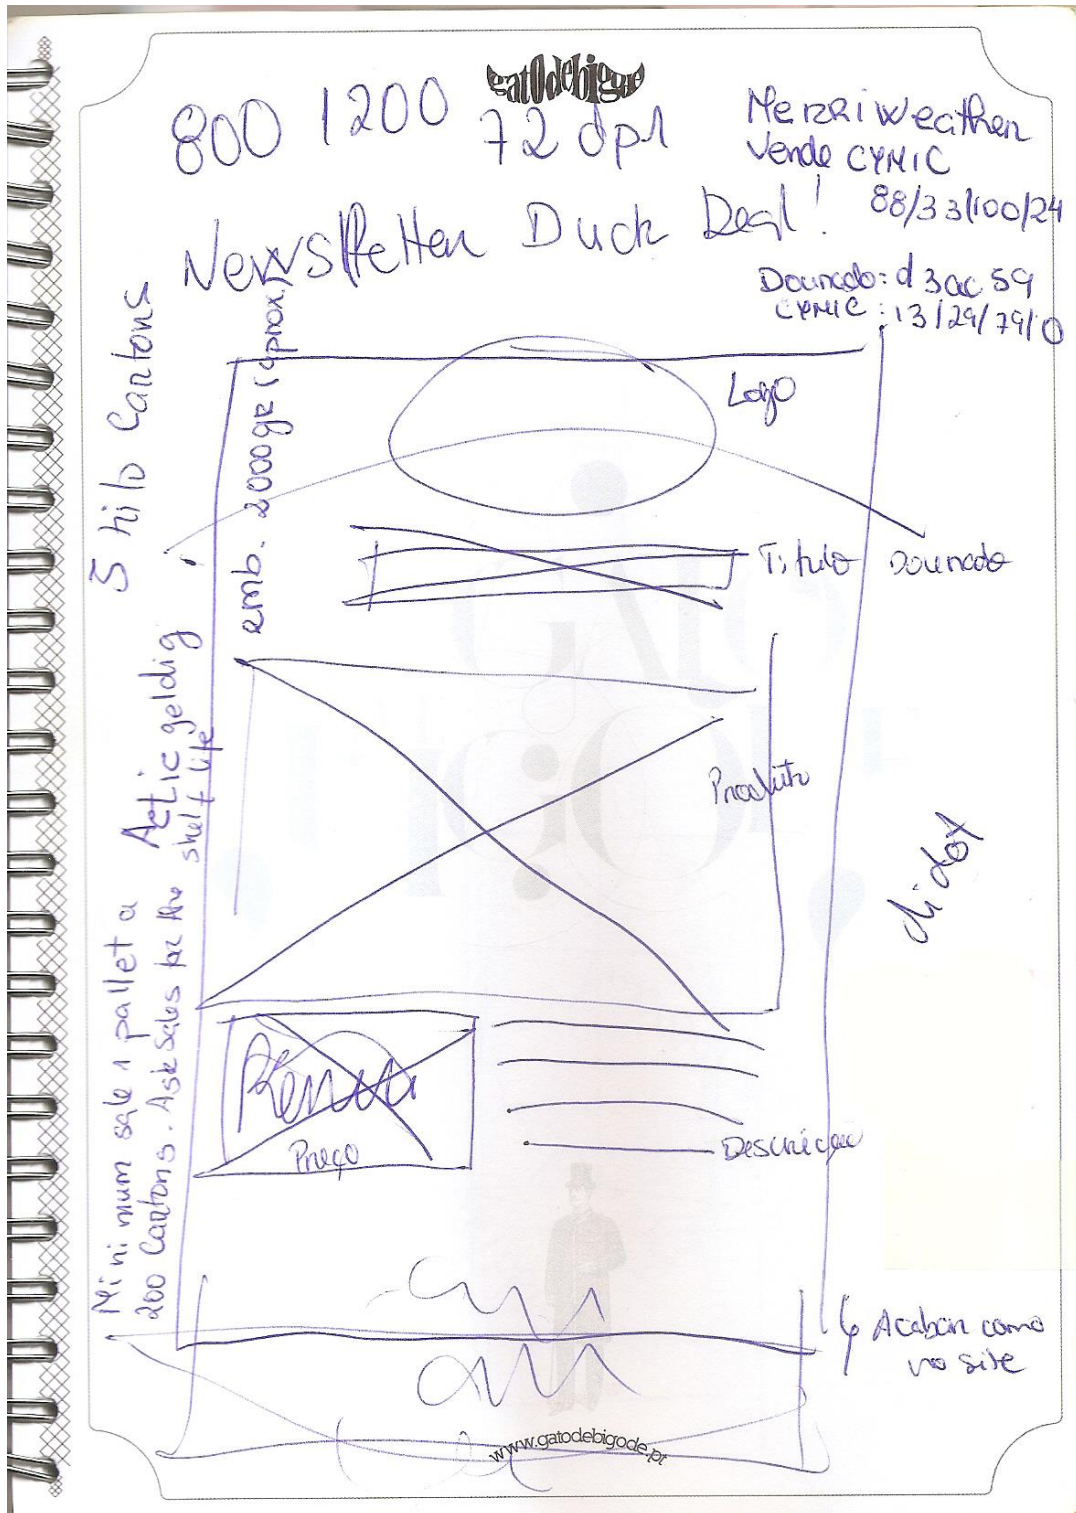 gatodebigode
800 1200 72 dpi
Merriweather
Verde CYMIC
88/33/100/24
Newsletter Duck Deal!
Dourado: d3ac59
CYMIC: 13/29/79/0
5 kilo Cartons
emb. 2000gr (aprox.)
Logo
Titulo
Dourado
Actie geldig
Minimum sale 1 pallet a
200 Cartons. Ask Sales for the shelf life
Produto
didot
Preço
Descrição
Acabar como
no site
www.gatodebigode.pt